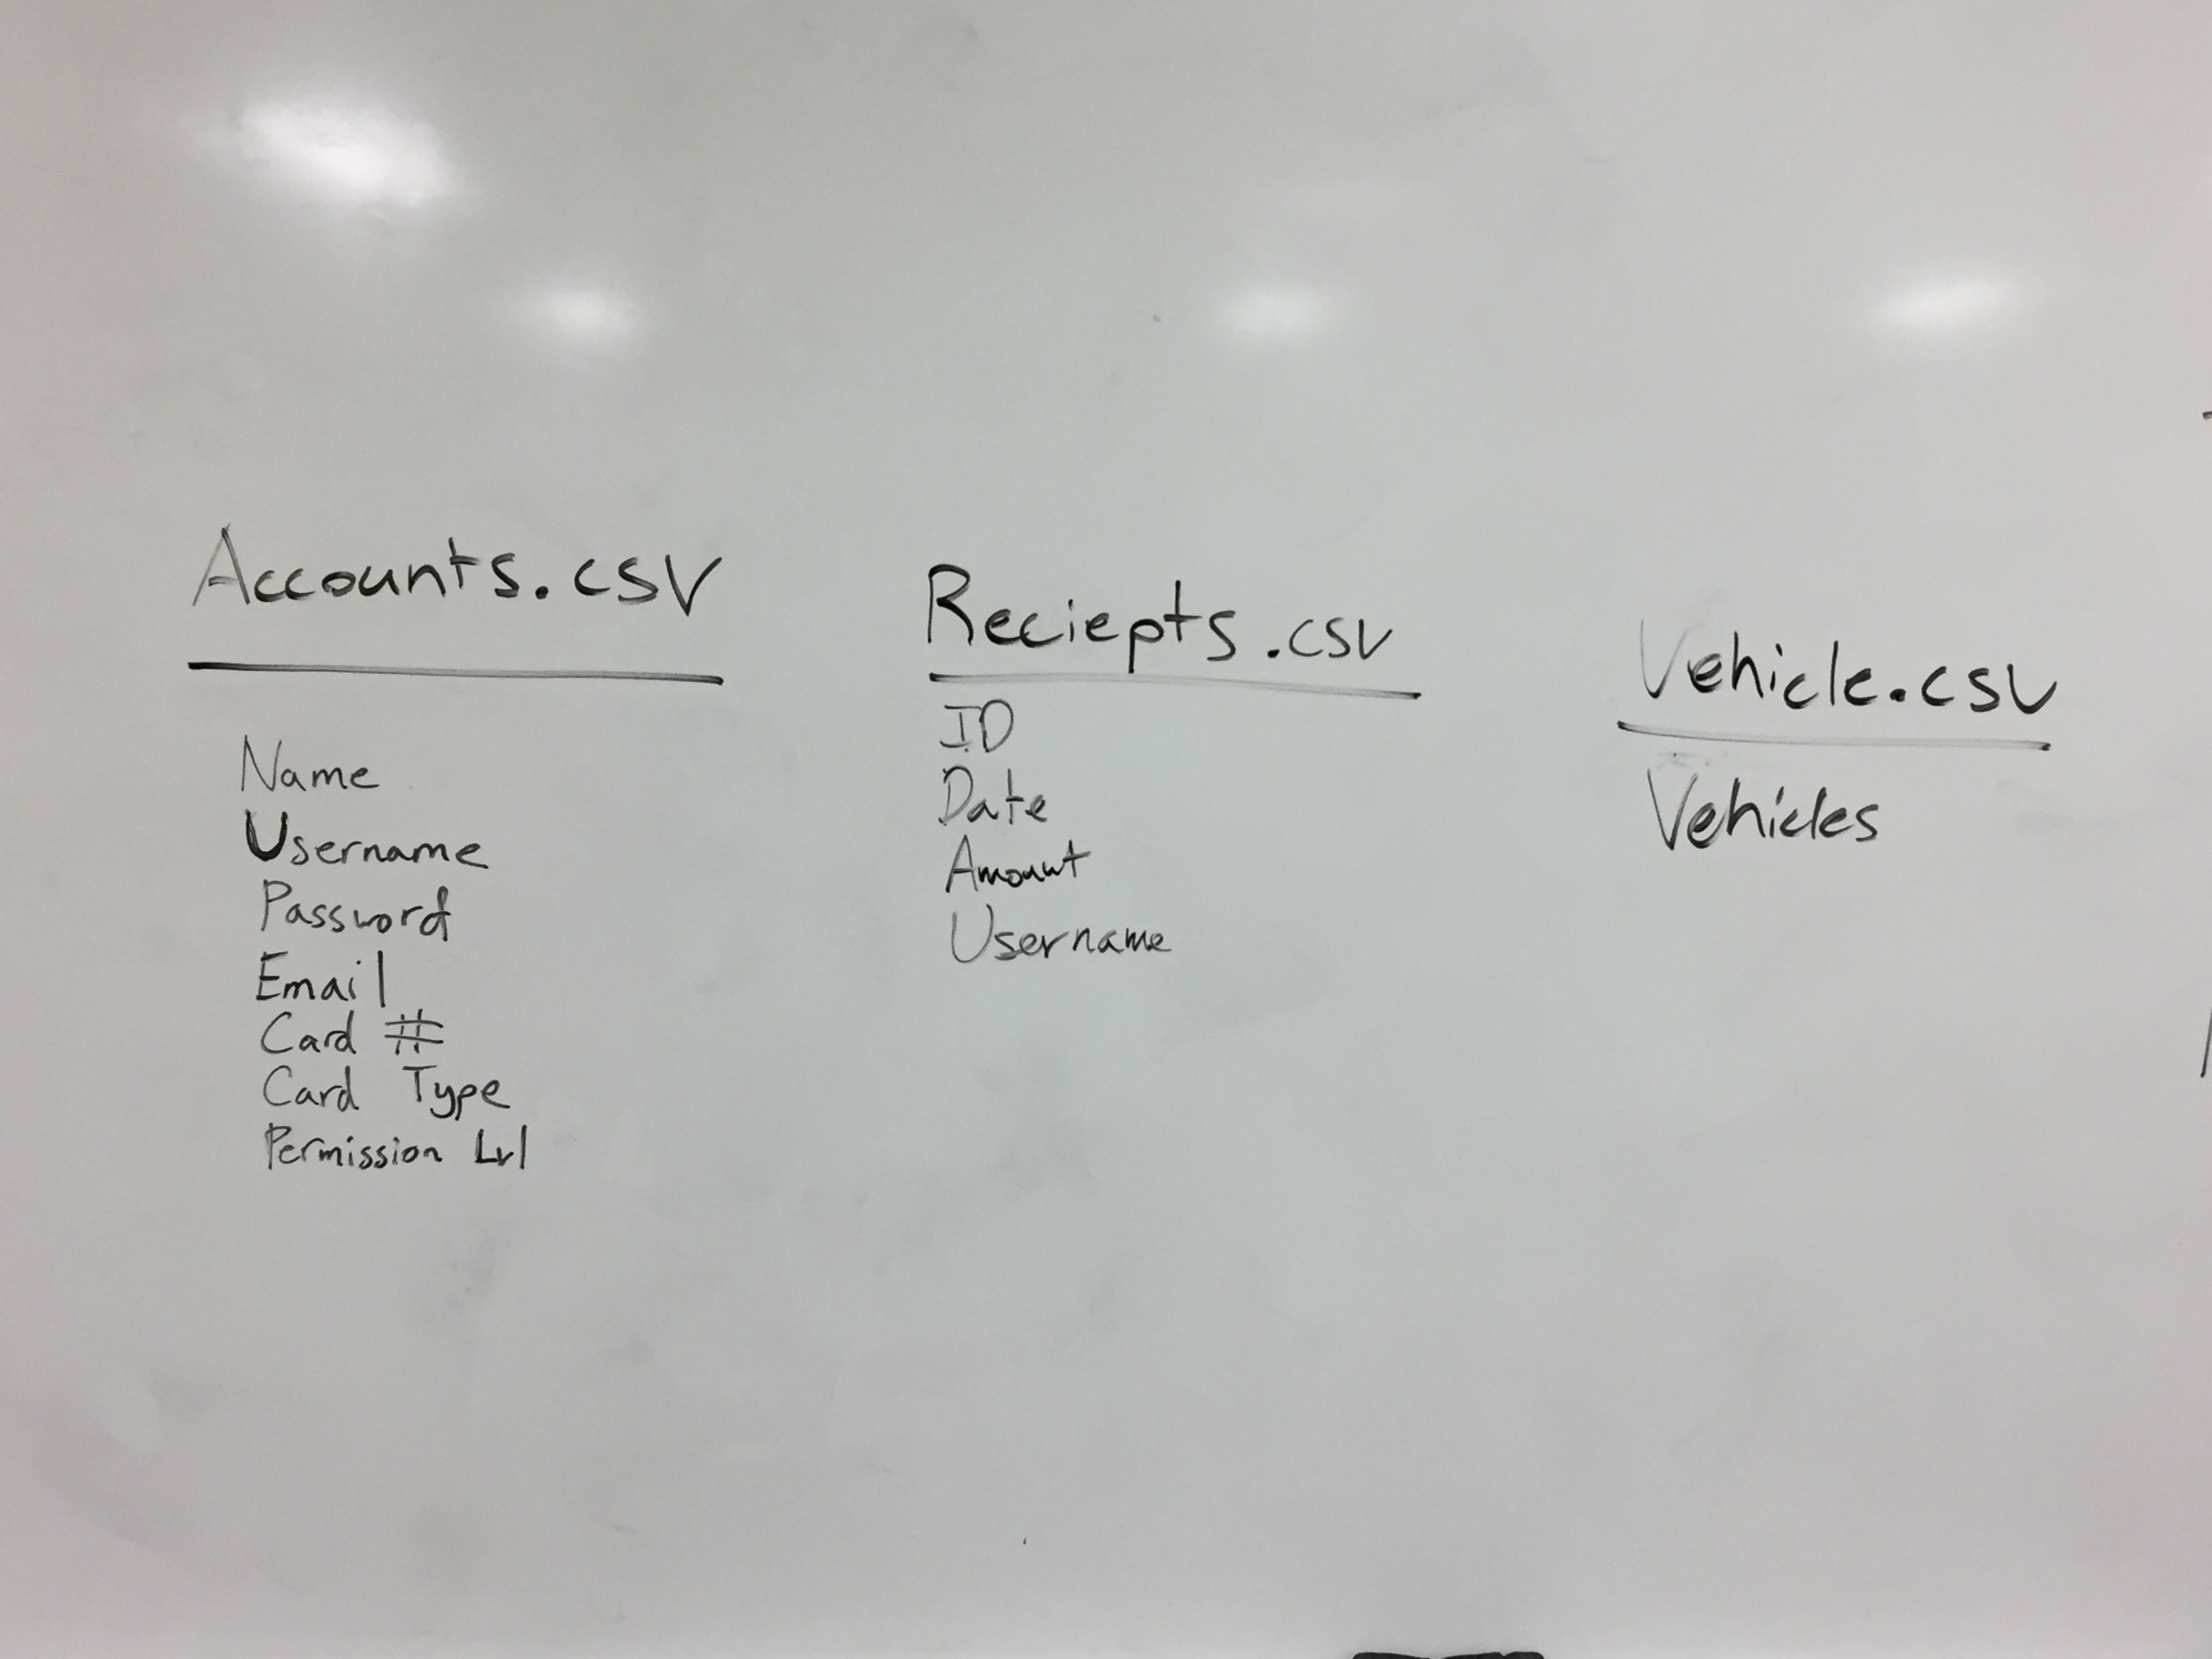 Accounts.csv
Name
Username
Password
Email
Card #
Card Type
Permission Lvl
Reciepts.csv
ID
Date
Amount
Username
Vehicle.csv
Vehicles